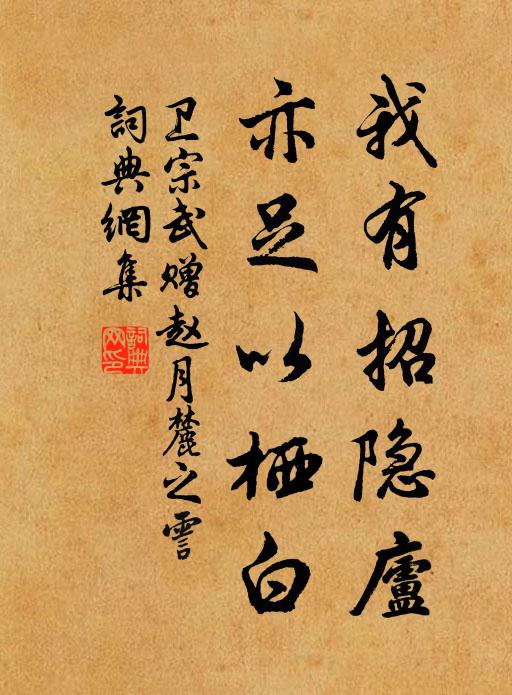 我有招隐廬
亦足以栖白
卫宗武赠赵月麓之霅
詞典網集
詞典網印